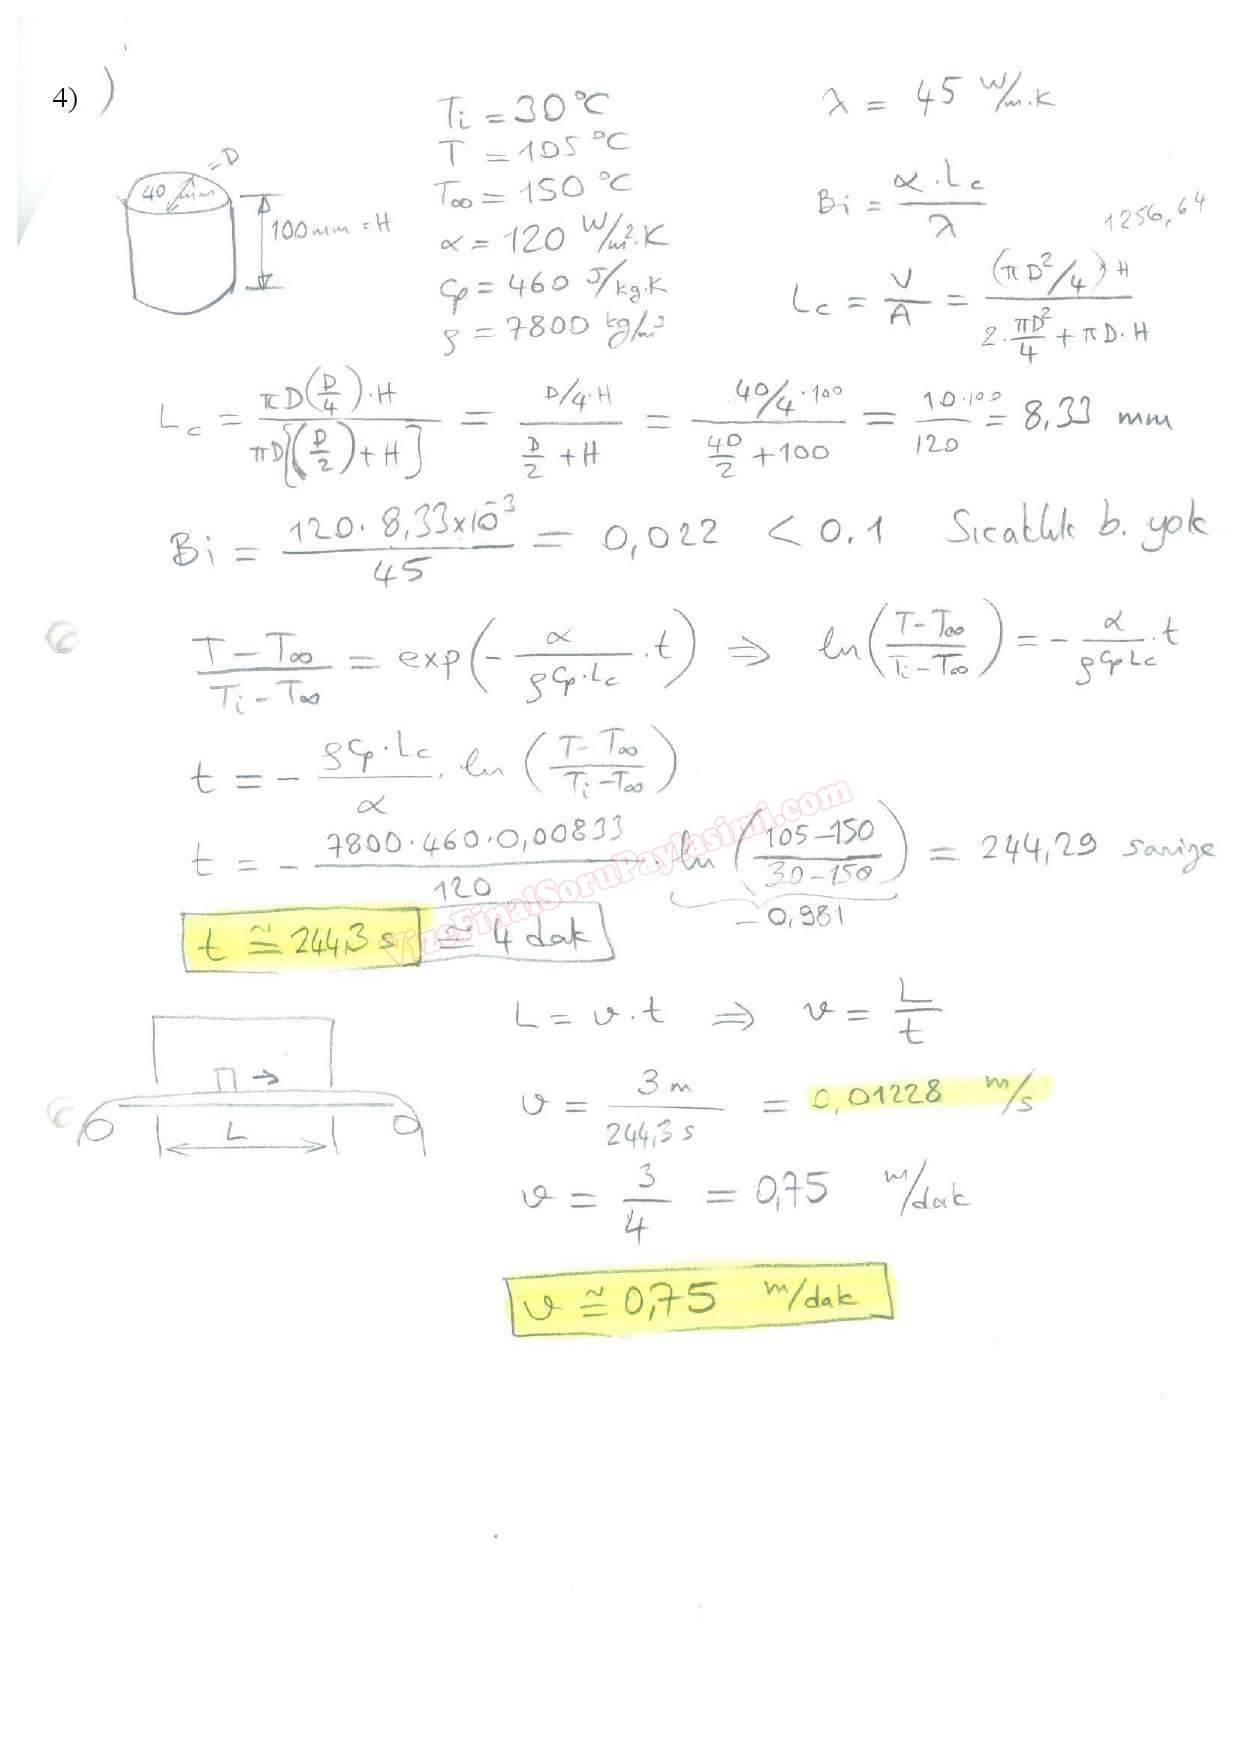 4) )
D
40 mm
100mm = H
Ti = 30 °C
T = 105 °C
T∞ = 150 °C
α = 120 W/m².K
Cp = 460 J/kg.K
ρ = 7800 kg/m³
λ = 45 W/m.K
Bi = α.Lc / λ
1256,64
Lc = V/A = (πD²/4)·H / (2·πD²/4 + πD·H)
Lc = πD(D/4)·H / πD[(D/2)+H] = D/4·H / (D/2 + H) = 40/4·100 / (40/2 + 100) = 10·100 / 120 = 8,33 mm
Bi = 120·8,33x10⁻³ / 45 = 0,022 < 0.1 Sıcaklık b. yok
(T-T∞)/(Ti-T∞) = exp(-α/(ρCp·Lc)·t) ⇒ ln((T-T∞)/(Ti-T∞)) = -α/(ρCpLc)·t
t = - ρCp·Lc/α · ln((T-T∞)/(Ti-T∞))
t = - 7800·460·0,00833/120 · ln((105-150)/(30-150)) = 244,29 saniye
-0,981
t ≅ 244,3 s ≅ 4 dak
VizeFinalSoruPaylasimi.com
L = υ.t ⇒ υ = L/t
L
υ = 3 m / 244,3 s = 0,01228 m/s
υ = 3/4 = 0,75 m/dak
υ ≅ 0,75 m/dak